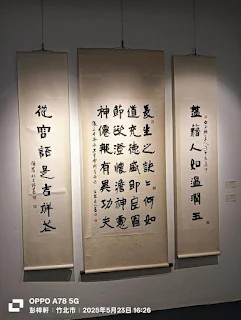 蘊藉人如溫潤玉
長生之訣〻何如
道充德盛即良圖
節欲澄懷澹神慮
神僊那有異功夫
從容語是吉祥花
OPPO A78 5G
彭梓軒｜竹北市｜2025年5月23日 16:26